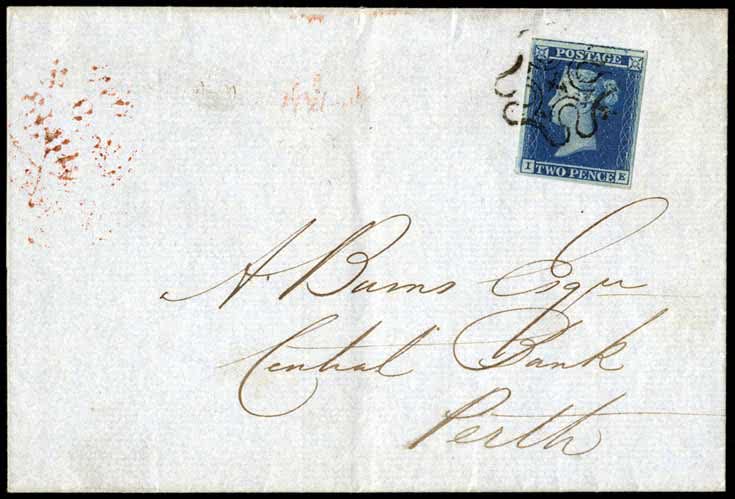 POSTAGE
TWO PENCE
I E
A Burns Esqr
Central Bank
Perth